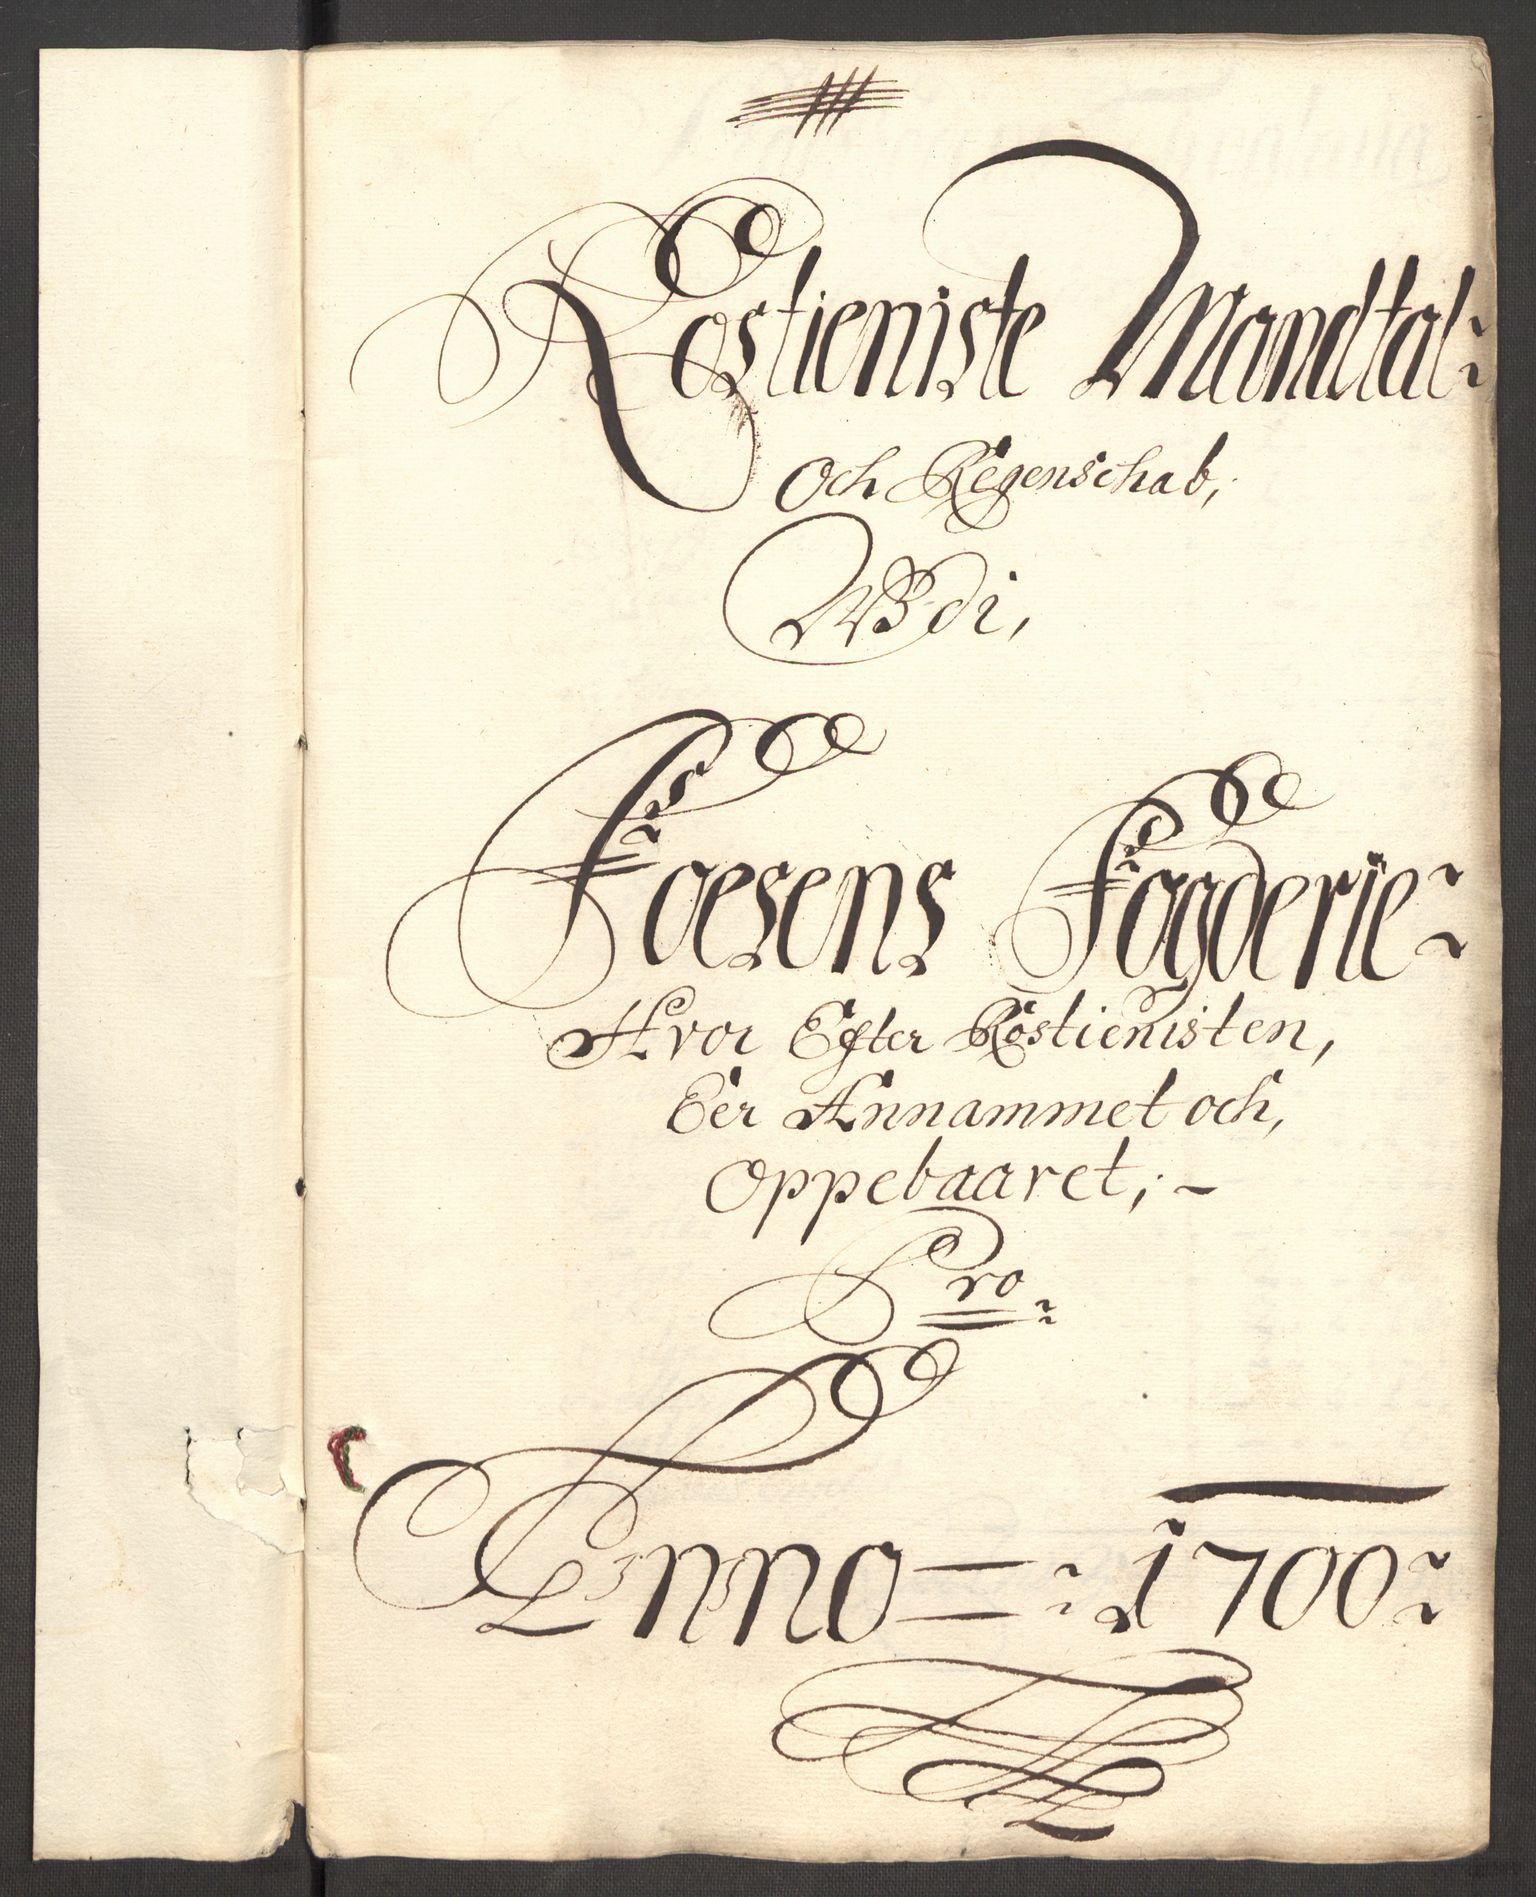 Rostieniste Mandtal:
Och Regenschab,
Udi,
Foesens Fogderie:
Hvor Efter Rostienisten,
Eer Annammet och,
Oppebaaret; -
Pro:
Anno = : 1700 :